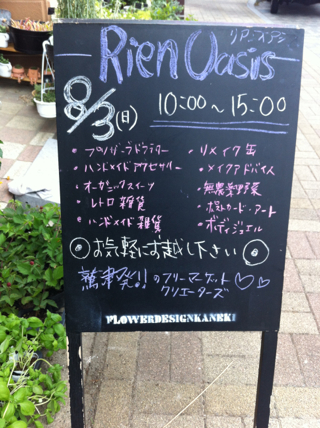 リアン・オアシス
Rien Oasis
8/3(日)
10:00~15:00
・ハンドメイドアクセサリー
・オーガニックスイーツ
・レトロ雑貨
・ハンドメイド雑貨
・リメイク缶
・メイクアドバイス
・無農薬野菜
・ポストカード・アート
・ボディジュエル
お気軽にお越し下さい
鷲津発!!のフリーマーケット♡♡
クリエーターズ
FLOWERDESIGNKANEKI